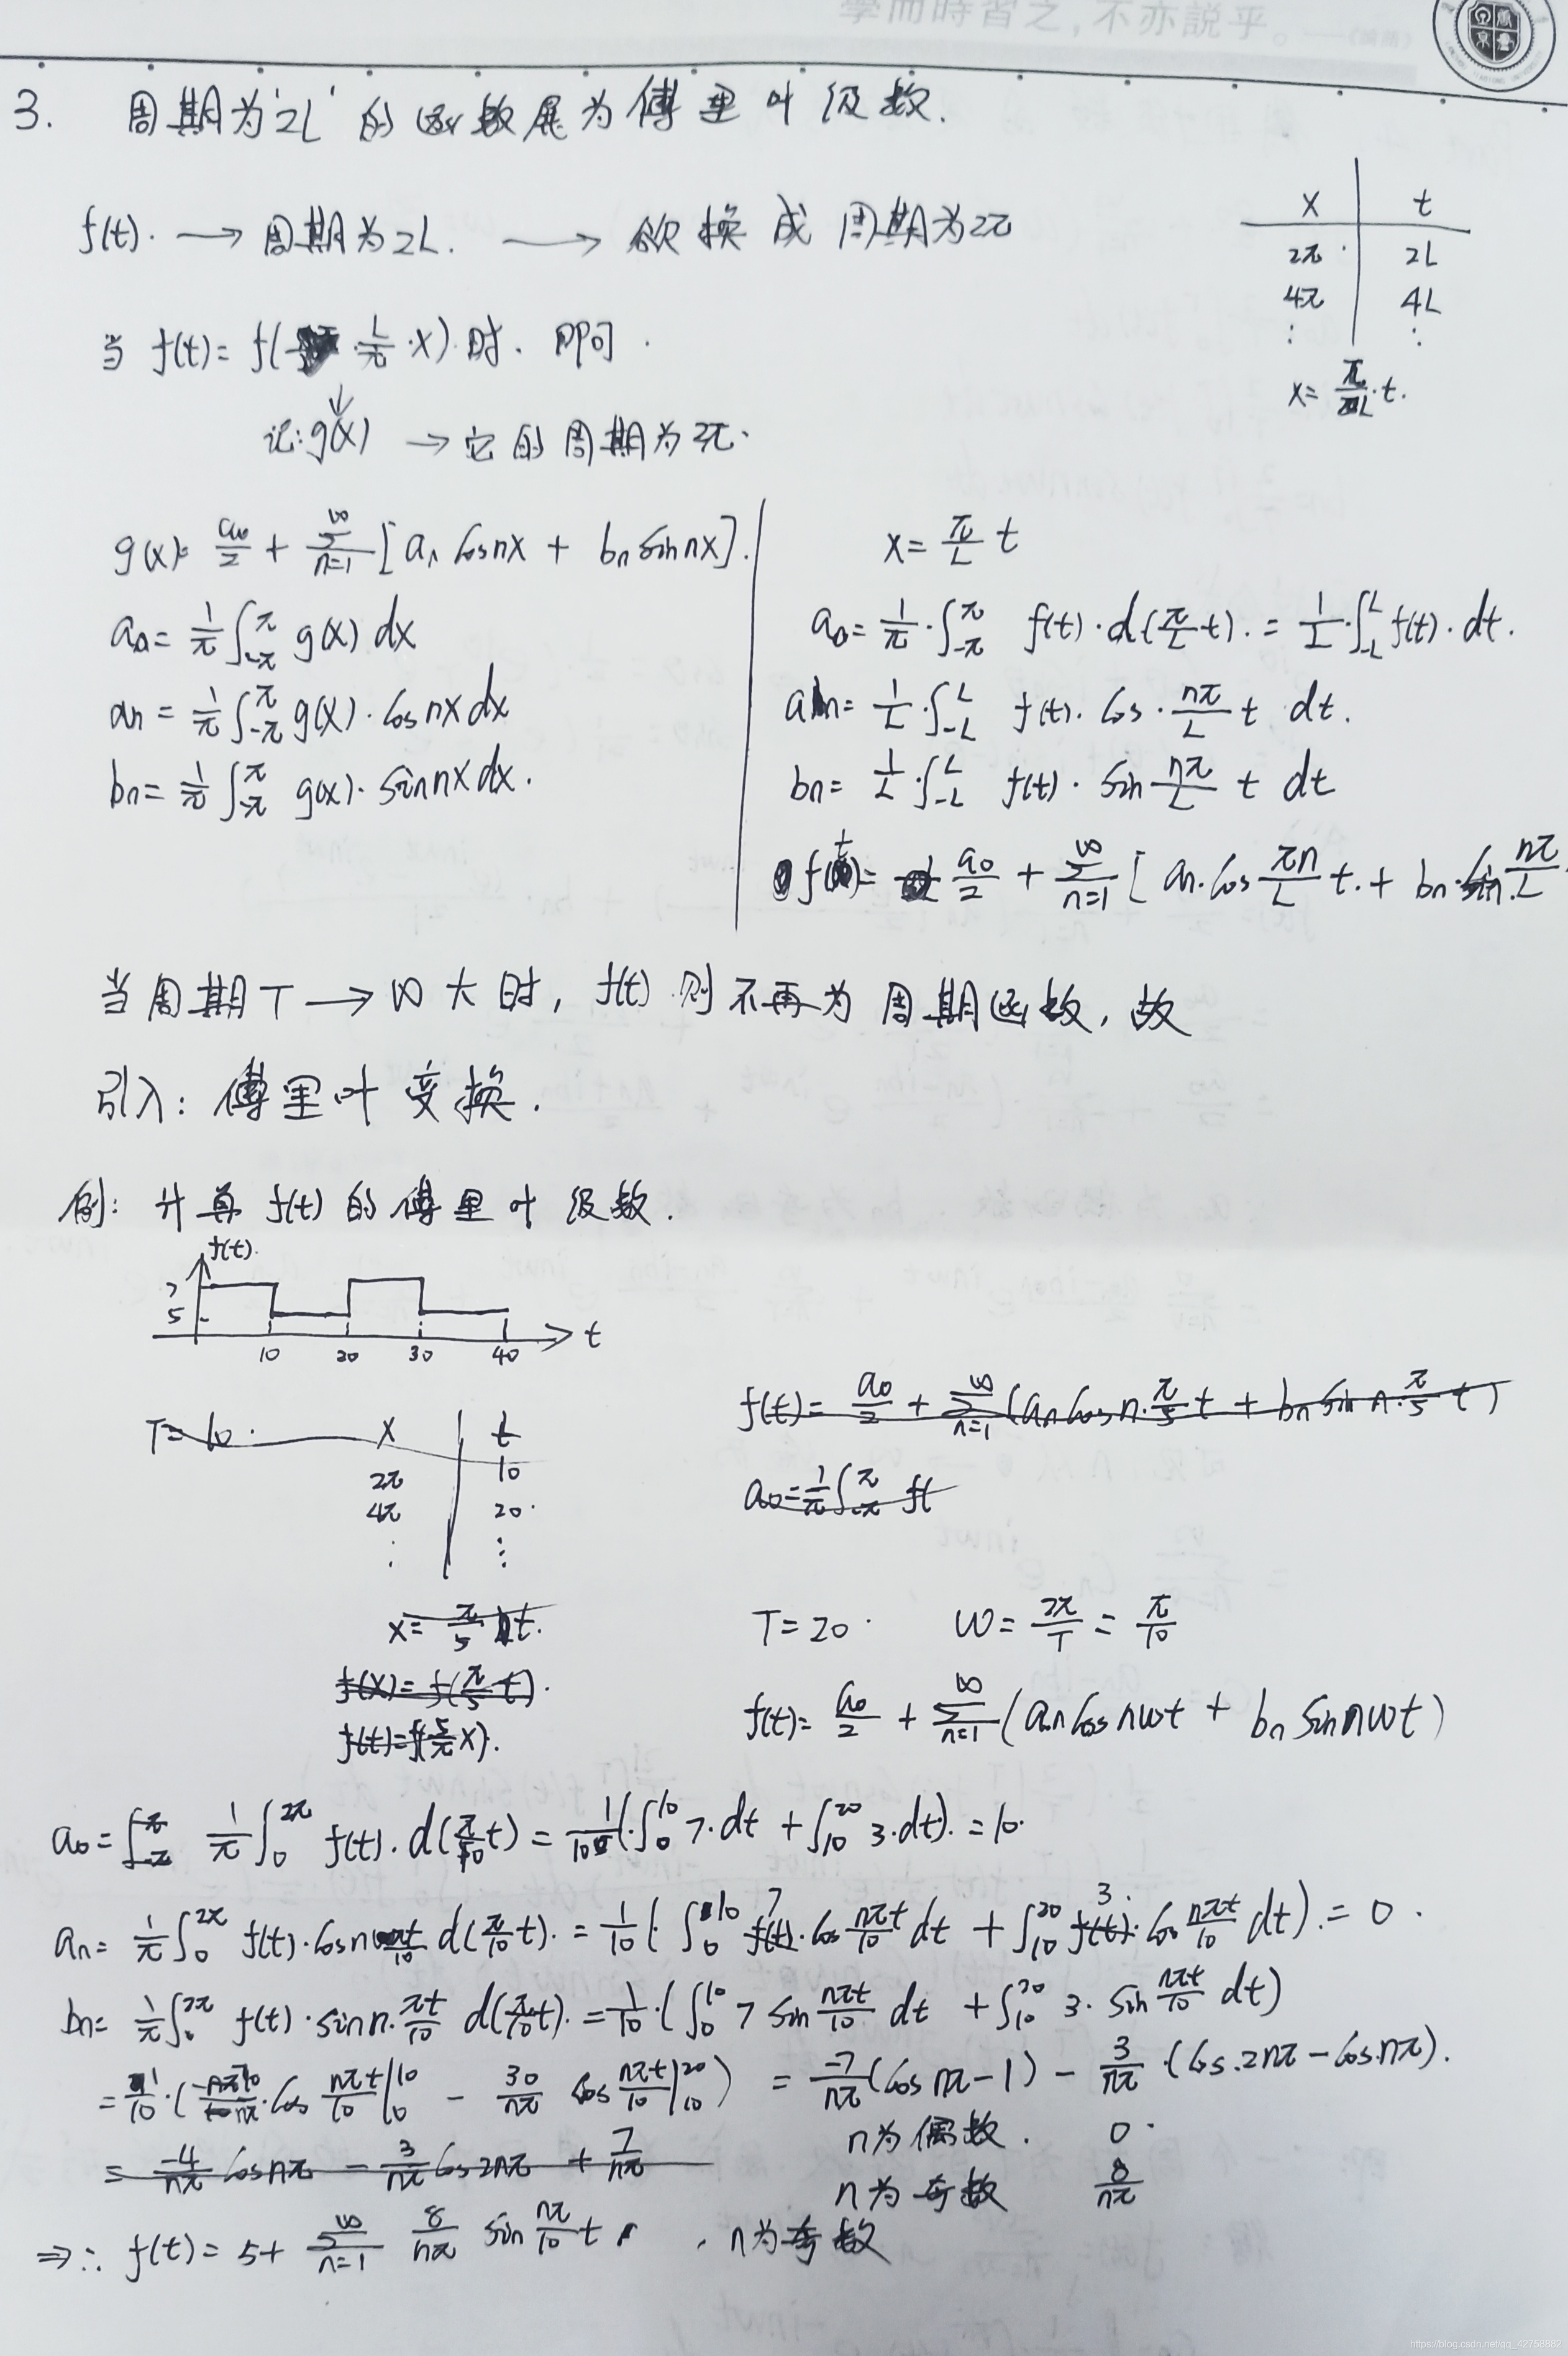 學而時習之,不亦説乎。
3. 周期为'2L'的函数展为傅里叶级数.
f(t). → 周期为2L. → 欲换成周期为2π
x t
2π 2L
4π 4L
⋮ ⋮
x = π/L · t.
当 f(t) = f( · L/π · x) 时. 即可.
↓
记: g(x) → 它的周期为2π.
g(x) = a0/2 + ∑_{n=1}^{∞} [an cos nx + bn sin nx].
a0 = 1/π ∫_{-π}^{π} g(x) dx
an = 1/π ∫_{-π}^{π} g(x) · cos nx dx
bn = 1/π ∫_{-π}^{π} g(x) · sin nx dx.
x = π/L t
a0 = 1/π · ∫_{-π}^{π} f(t) · d(π/L t). = 1/L · ∫_{-L}^{L} f(t) · dt.
an = 1/L · ∫_{-L}^{L} f(t) · cos · nπ/L t dt.
bn = 1/L · ∫_{-L}^{L} f(t) · sin nπ/L t dt
f(t) = a0/2 + ∑_{n=1}^{∞} [an · cos πn/L t. + bn · sin nπ/L ·
当周期T → ∞大时, f(t)则不再为周期函数, 故
引入: 傅里叶变换.
例: 计算f(t)的傅里叶级数.
f(t).
7
5
10 20 30 40 t
T = 10.
x t
2π 10
4π 20.
⋮ ⋮
x = π/5 t.
f(x) = f(π/5 t).
f(t) = f(5/π x).
f(t) = a0/2 + ∑_{n=1}^{∞} (an cos n · π/5 t + bn sin n · π/5 t)
a0 = 1/π ∫_{-π}^{π} f(
T = 20. W = 2π/T = π/10
f(t) = a0/2 + ∑_{n=1}^{∞} (an cos nwt + bn sin nwt)
a0 = ∫_{-π}^{π} 1/π ∫_{0}^{2π} f(t). d(π/10 t) = 1/10 (· ∫_{0}^{10} 7 · dt + ∫_{10}^{20} 3 · dt). = 10.
an = 1/π ∫_{0}^{2π} f(t) · cos n πt/10 d(π/10 t). = 1/10 (· ∫_{0}^{10} 7 f(t) · cos nπt/10 dt + ∫_{10}^{20} 3. f(t) · cos nπt/10 dt). = 0.
bn = 1/π ∫_{0}^{2π} f(t) · sin n · πt/10 d(π/10 t). = 1/10 · (∫_{0}^{10} 7 sin nπt/10 dt + ∫_{10}^{20} 3 · sin nπt/10 dt)
= 1/10 · ( -70/nπ · cos nπt/10 |_{0}^{10} - 30/nπ cos nπt/10 |_{10}^{20} ) = -7/nπ (cos nπ - 1) - 3/nπ · (cos 2nπ - cos nπ).
= -4/nπ cos nπ - 3/nπ cos 2nπ + 7/nπ
n为偶数. 0.
n为奇数 8/nπ
⇒ ∴ f(t) = 5 + ∑_{n=1}^{∞} 8/nπ sin nπ/10 t , n为奇数
https://blog.csdn.net/qq_42758882